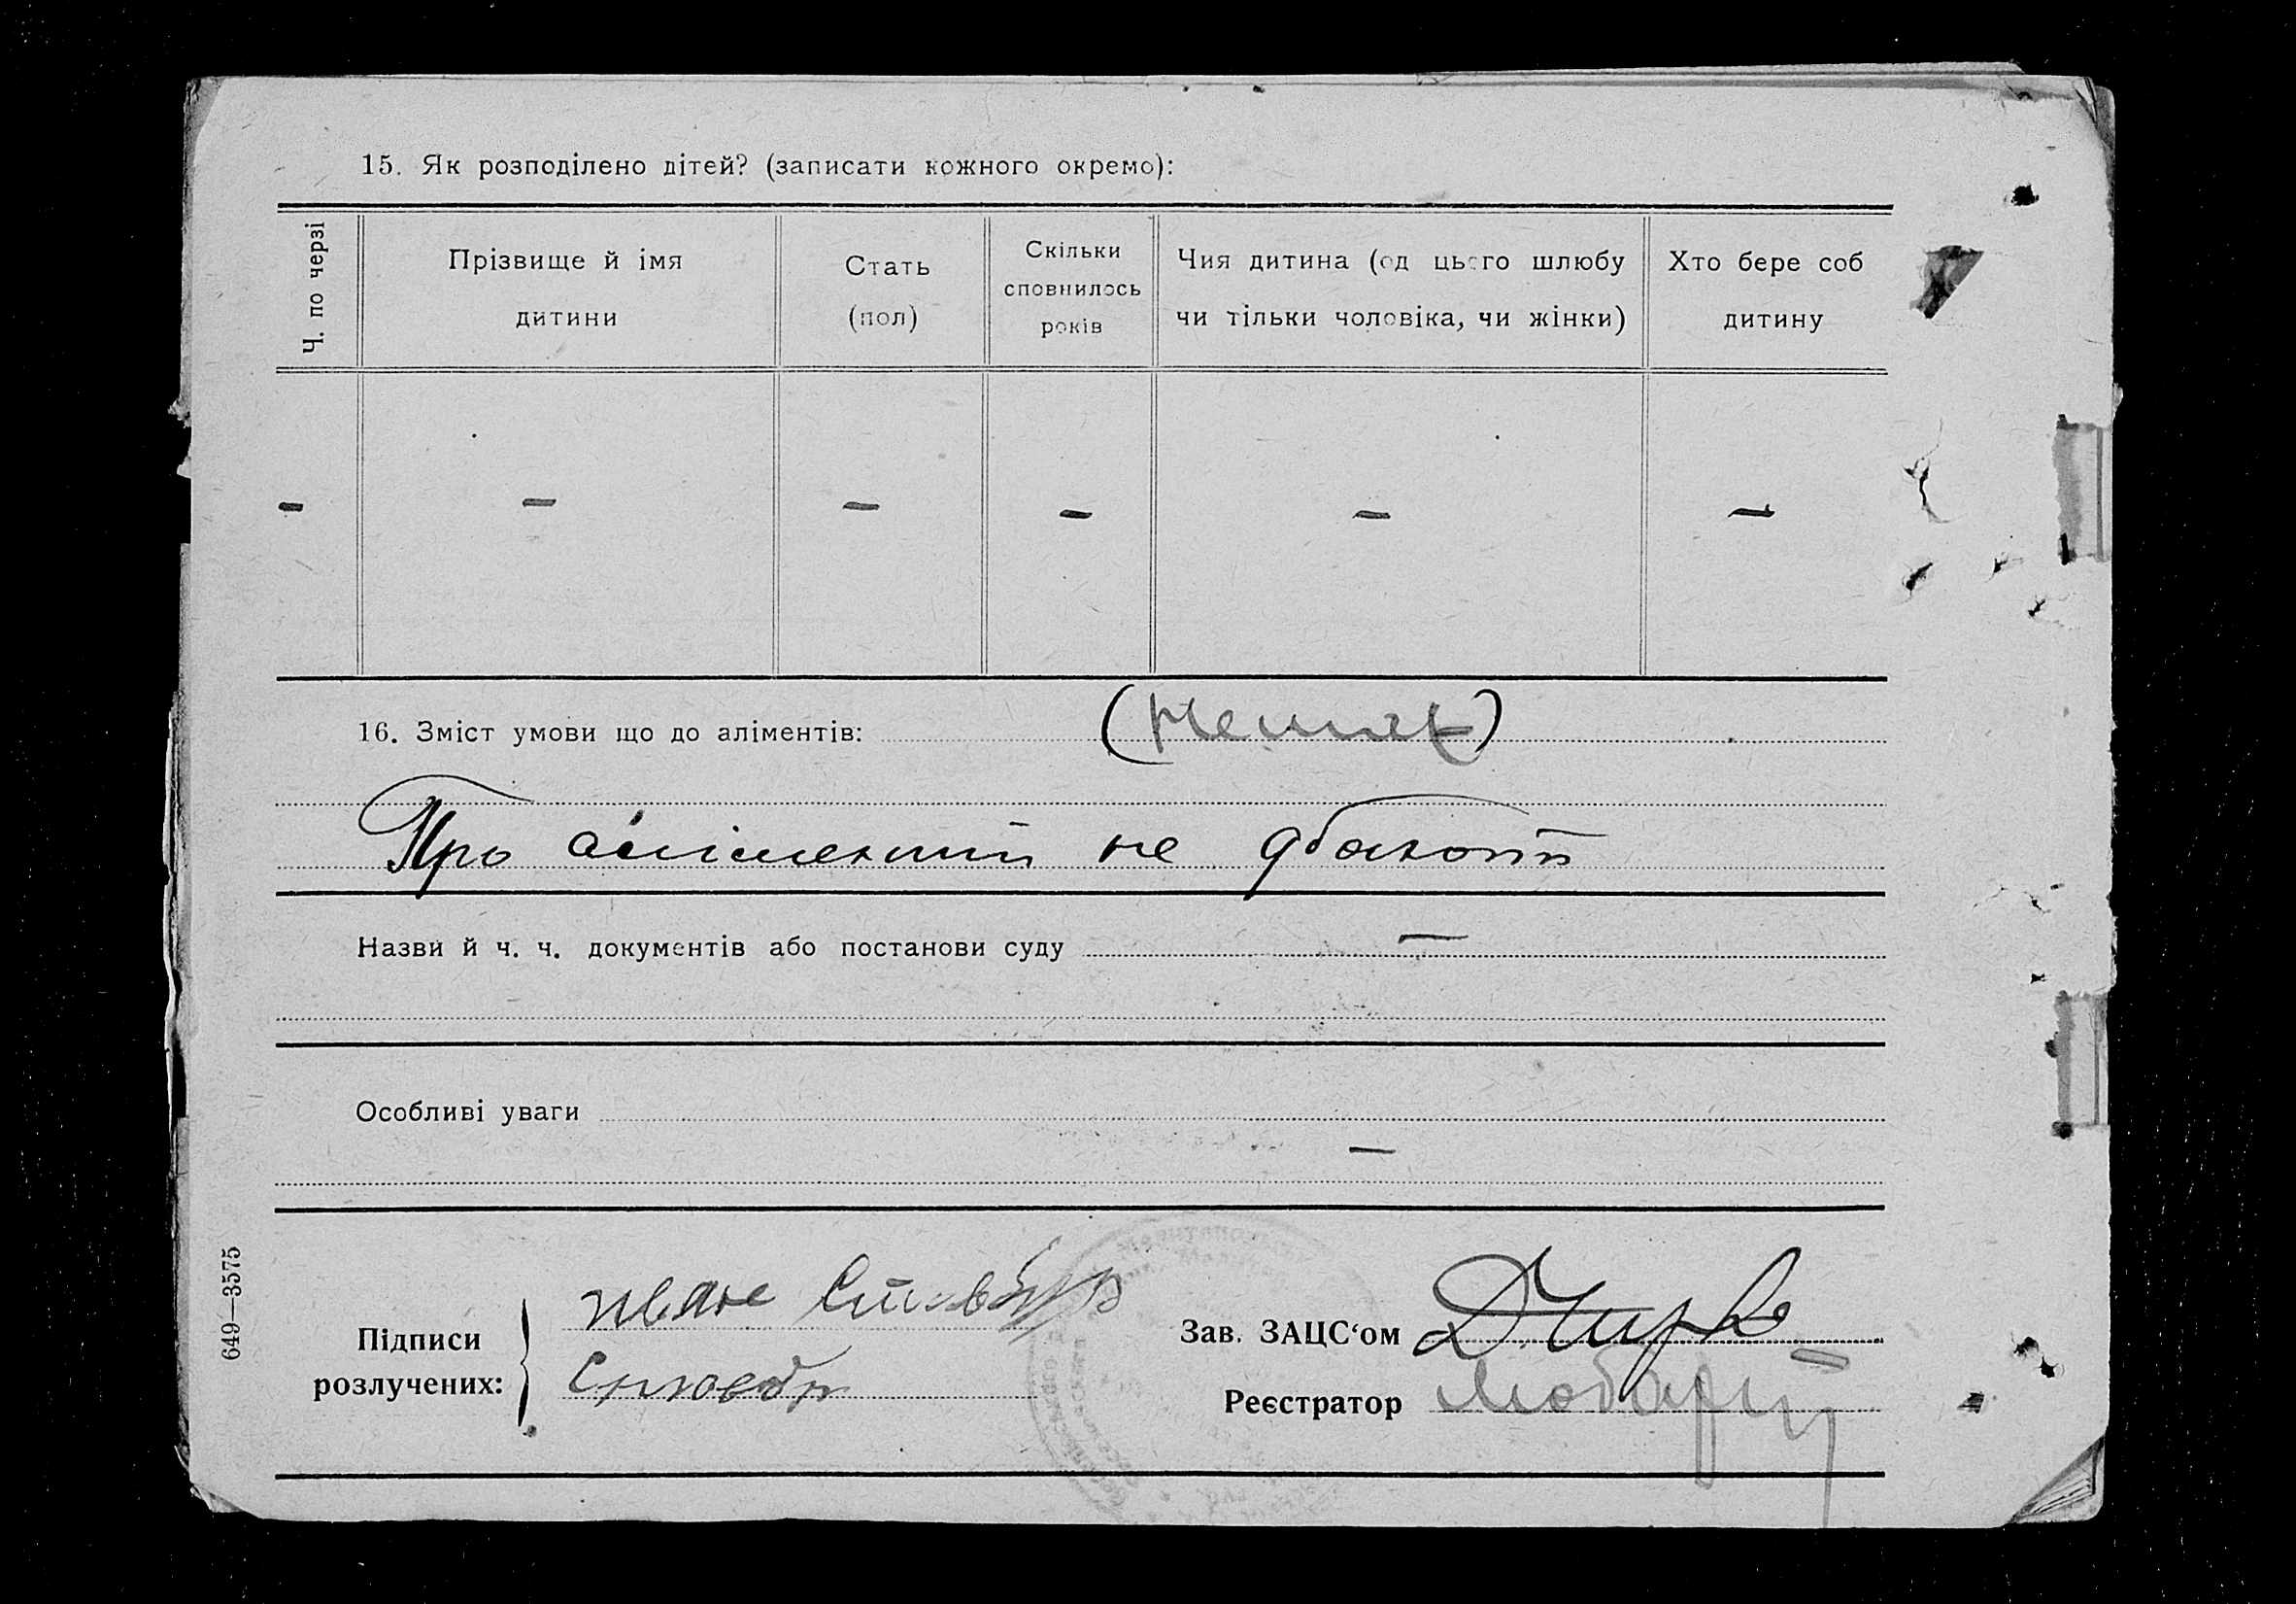 15. Як розподілено дітей? (записати кожного окремо):
Ч. по черзі
Прізвище й імя дитини
Стать (пол)
Скільки сповнилось років
Чия дитина (од цього шлюбу чи тільки чоловіка, чи жінки)
Хто бере соб дитину
– – – – – –
16. Зміст умови що до аліментів:
Про аліменти не дбають
Назви й ч. ч. документів або постанови суду –
Особливі уваги
–
649—3575
Підписи розлучених:
Зав. ЗАЦС‘ом
Реєстратор